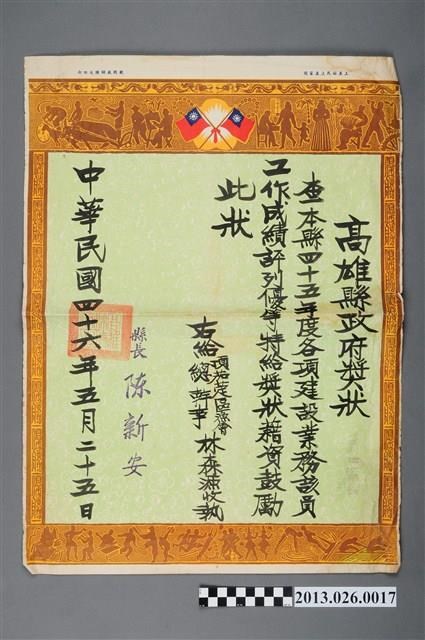 高雄縣政府奬狀
查本縣四十五年度各項建設業務該員
工作成績評列優等特給奬狀藉資鼓勵
此狀
右給
總幹事
林森源收執
縣長 陳新安
中華民國四十六年五月二十五日
2013.026.0017